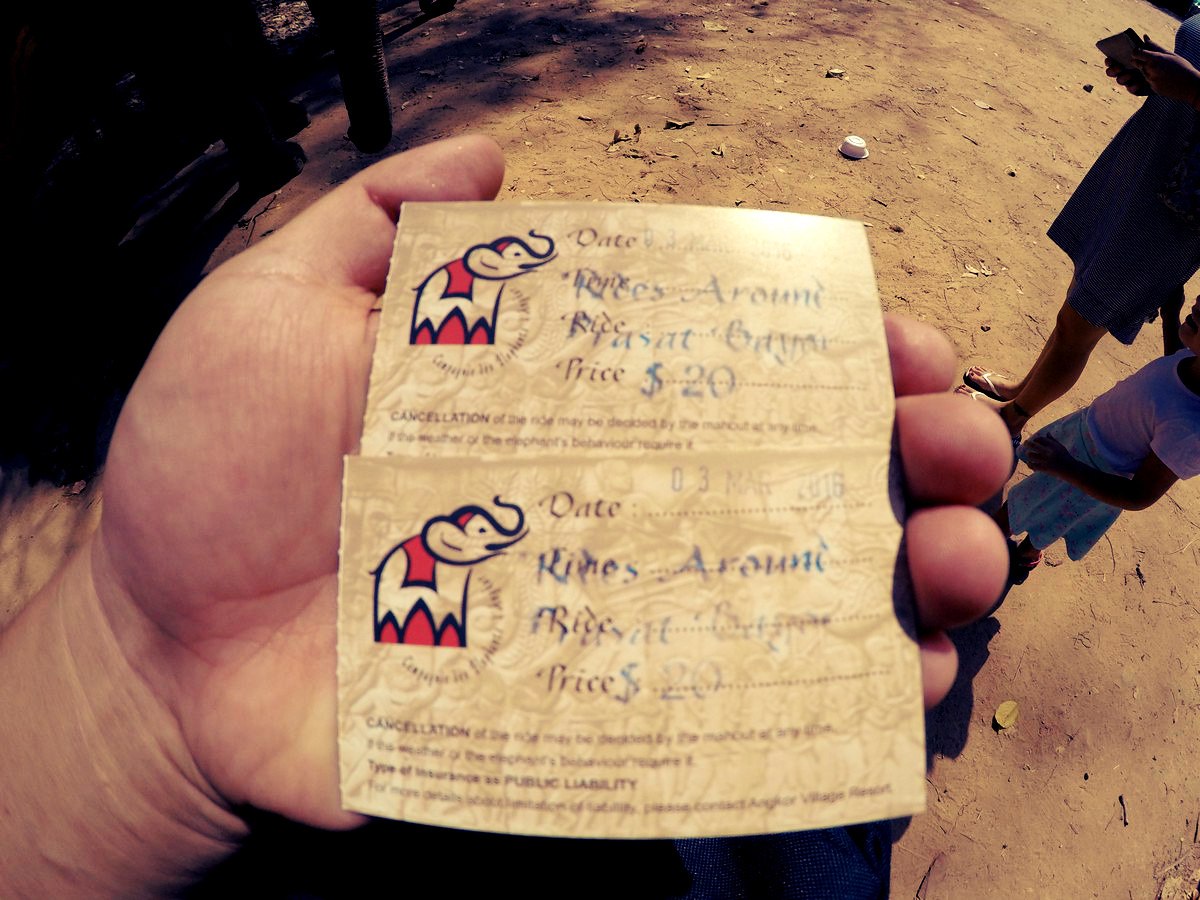 Date 03 MAR 2016
Time
Rides Around
Ride
Prasat Bayon
Price $ 20
CANCELLATION of the ride may be decided by the mahout at any time,
if the weather or the elephant's behaviour require it.
Date : 03 MAR 2016
Time
Rides Around
Ride
Prasat Bayon
Price $ 20
CANCELLATION of the ride may be decided by the mahout at any time,
if the weather or the elephant's behaviour require it.
Type of insurance as PUBLIC LIABILITY
For more details about limitation of liability, please contact Angkor Village Resort.